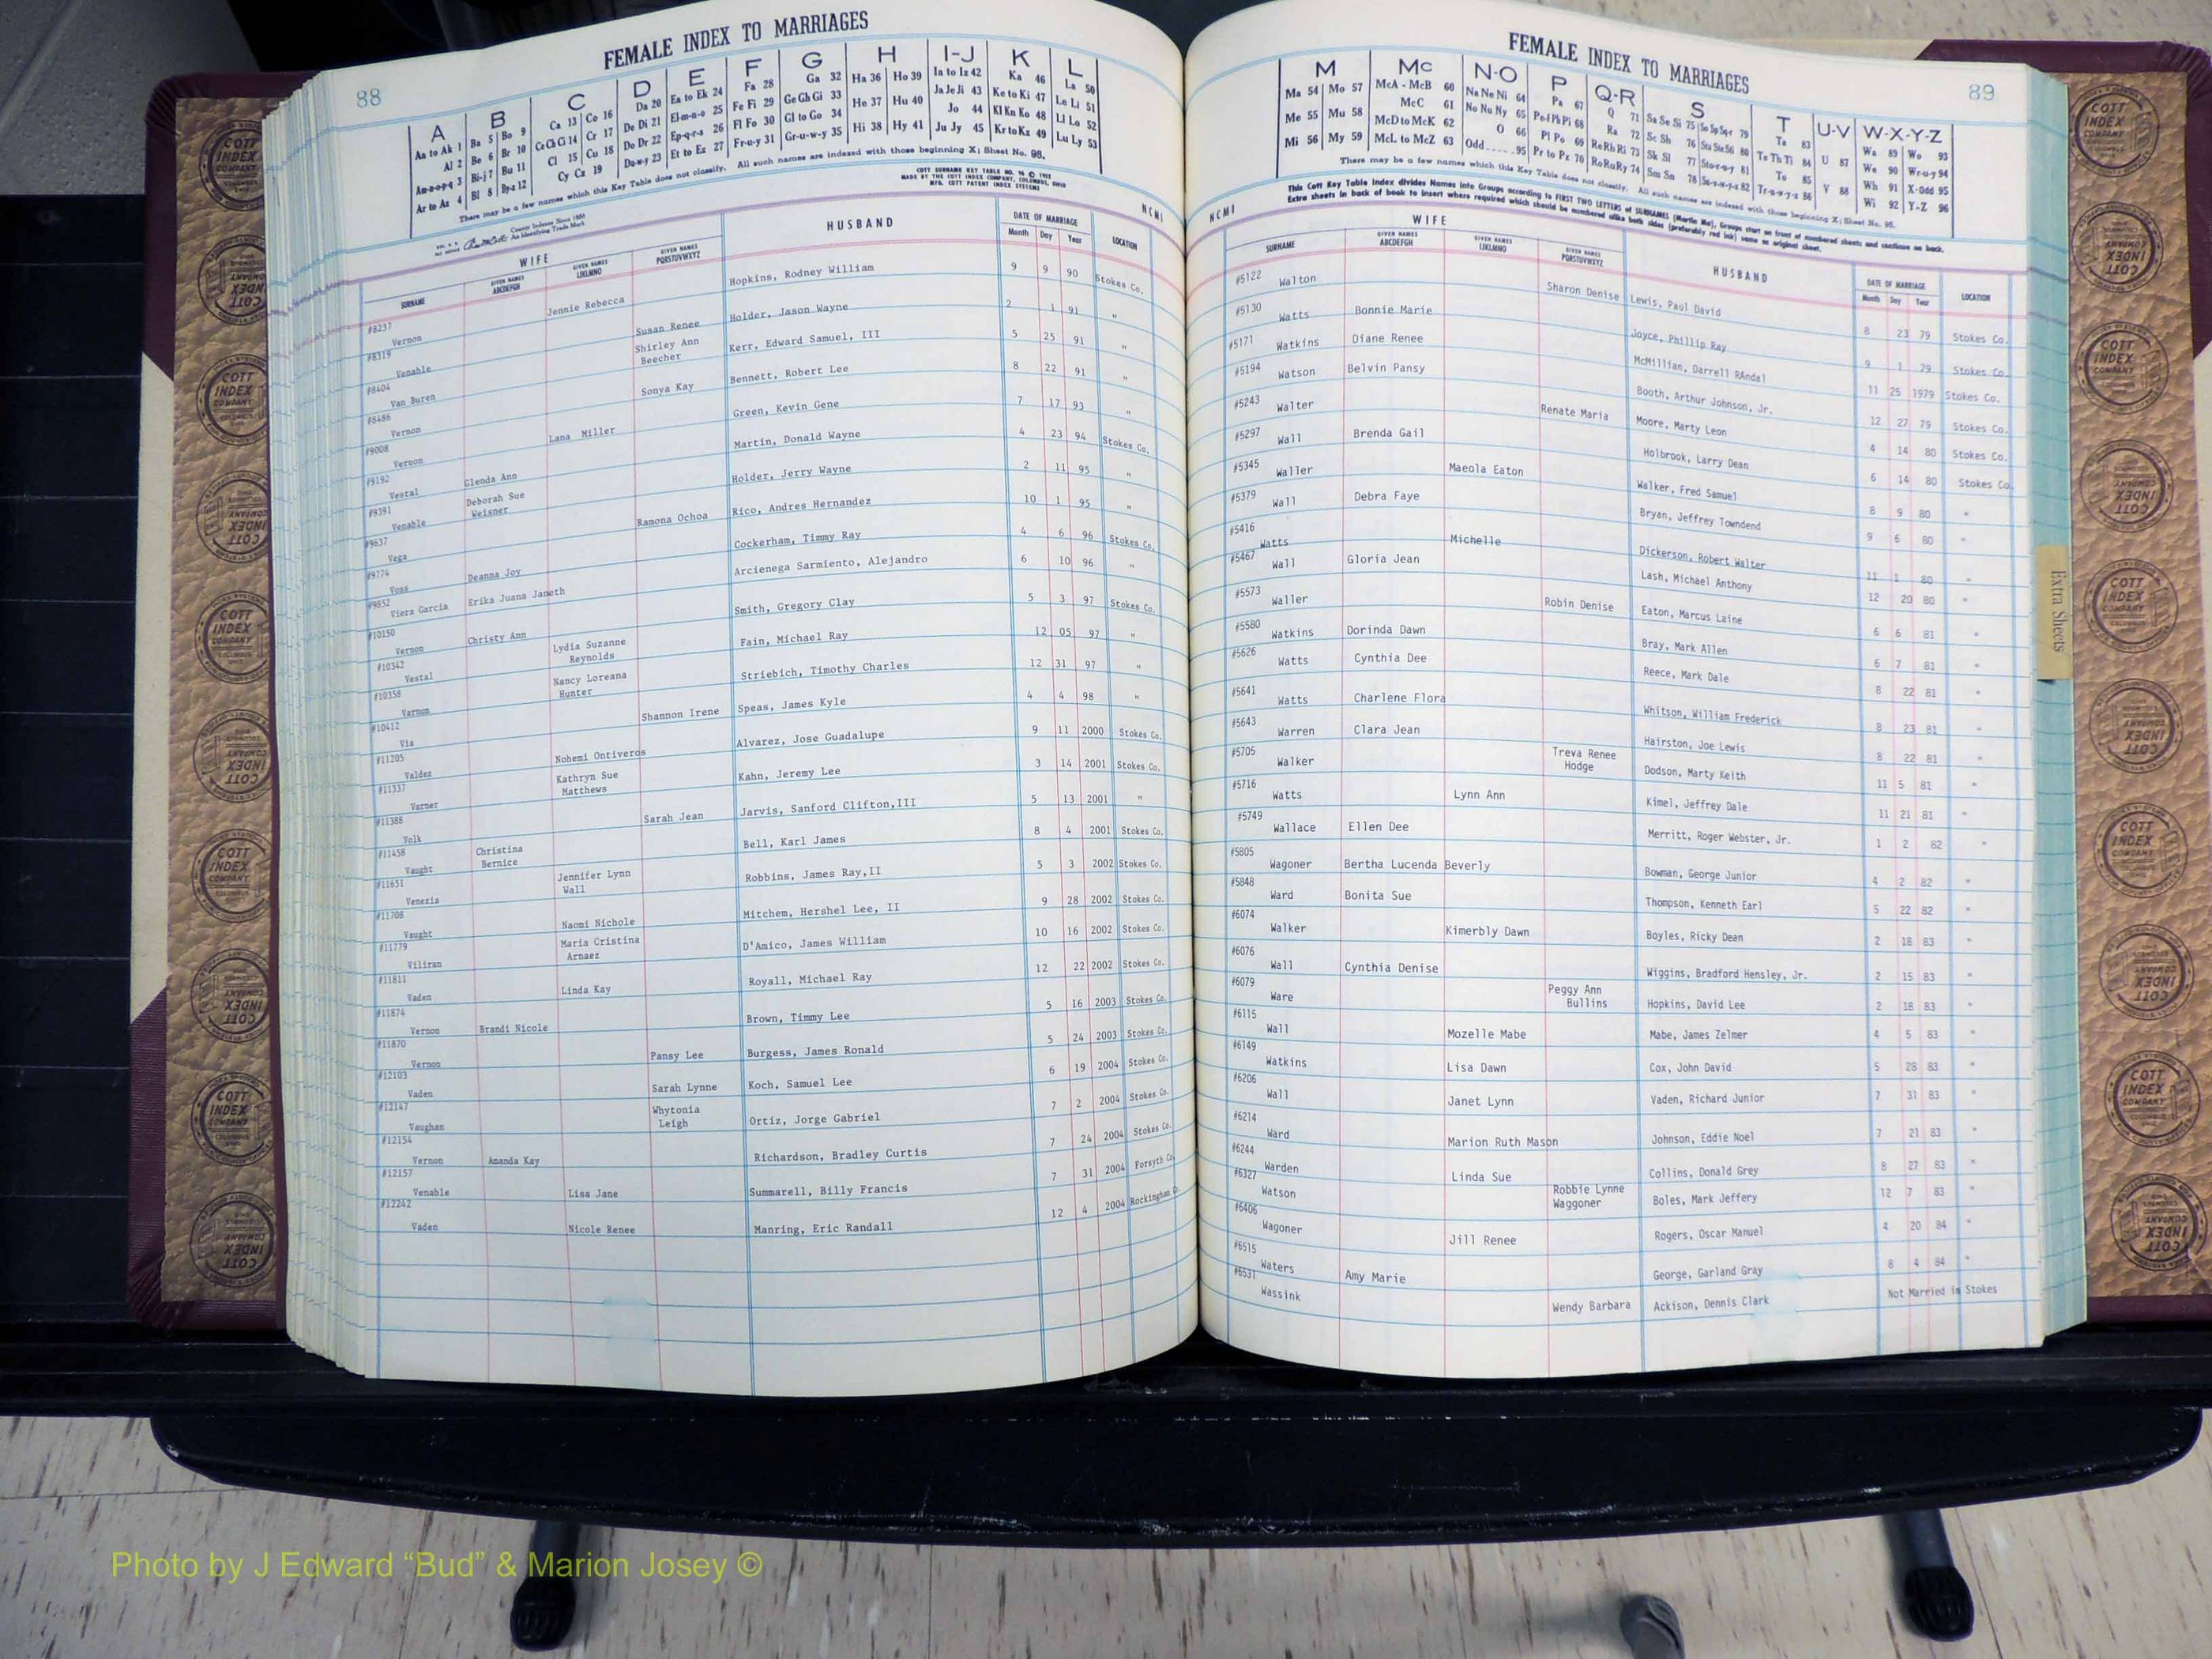 88
FEMALE INDEX TO MARRIAGES
A B C D E F G H I-J K L
Aa to Ak 1 Ba 5 Bo 9 Ca 13 Co 16 Da 20 Ea to Ek 24 Fa 28 Ga 32 Ha 36 Ho 39 Ia to Iz 42 Ka 46 La 50
Al 2 Be 6 Br 10 Ce Ch Ci 14 Cr 17 De Di 21 El-m-n-o 25 Fe Fi 29 Ge Gh Gi 33 He 37 Hu 40 Ja Je Ji 43 Ke to Ki 47 Le Li 51
Am-n-o-p-q 3 Bi-j 7 Bu 11 Cl 15 Cu 18 Do Dr 22 Ep-q-r-s 26 Fl Fo 30 Gl to Go 34 Hi 38 Hy 41 Jo 44 Kl Kn Ko 48 Ll Lo 52
Ar to Az 4 Bl 8 By-z 12 Cy Cz 19 Du-w-y 23 Et to Ez 27 Fr-u-y 31 Gr-u-w-y 35 Ju Jy 45 Kr to Kz 49 Lu Ly 53
There may be a few names which this Key Table does not classify. All such names are indexed with those beginning X; Sheet No. 95.
County Indexes Since 1888
An Identifying Trade Mark
COTT SURNAME KEY TABLE NO.
MADE BY THE COTT INDEX COMPANY, COLUMBUS, OHIO
MFG. COTT PATENT INDEX SYSTEMS
NCMI
WIFE HUSBAND DATE OF MARRIAGE LOCATION
SURNAME GIVEN NAMES ABCDEFGH GIVEN NAMES IJKLMNO GIVEN NAMES PQRSTUVWXYZ Month Day Year
#8237 Vernon Jennie Rebecca Hopkins, Rodney William 9 9 90 Stokes Co.
#8319 Venable Susan Renee Holder, Jason Wayne 2 1 91 "
#8404 Van Buren Shirley Ann Beecher Kerr, Edward Samuel, III 5 25 91 "
#8486 Vernon Sonya Kay Bennett, Robert Lee 8 22 91 "
#9008 Vernon Lana Miller Green, Kevin Gene 7 17 93 "
#9192 Vestal Glenda Ann Martin, Donald Wayne 4 23 94 Stokes Co.
#9391 Venable Deborah Sue Weisner Holder, Jerry Wayne 2 11 95 "
#9637 Vega Ramona Ochoa Rico, Andres Hernandez 10 1 95 "
#9774 Voss Deanna Joy Cockerham, Timmy Ray 4 6 96 Stokes Co.
#9852 Viera Garcia Erika Juana Janeth Arcienega Sarmiento, Alejandro 6 10 96 "
#10150 Vernon Christy Ann Smith, Gregory Clay 5 3 97 Stokes Co.
#10342 Vestal Lydia Suzanne Reynolds Fain, Michael Ray 12 05 97 "
#10358 Varnom Nancy Loreana Hunter Striebich, Timothy Charles 12 31 97 "
#10412 Via Shannon Irene Speas, James Kyle 4 4 98 "
#11205 Valdez Nohemi Ontiveros Alvarez, Jose Guadalupe 9 11 2000 Stokes Co.
#11337 Varner Kathryn Sue Matthews Kahn, Jeremy Lee 3 14 2001 Stokes Co.
#11388 Volk Sarah Jean Jarvis, Sanford Clifton,III 5 13 2001 "
#11458 Vaught Christina Bernice Bell, Karl James 8 4 2001 Stokes Co.
#11651 Venezia Jennifer Lynn Wall Robbins, James Ray,II 5 3 2002 Stokes Co.
#11708 Vaught Naomi Nichole Mitchem, Hershel Lee, II 9 28 2002 Stokes Co.
#11779 Viliran Maria Cristina Arnaez D'Amico, James William 10 16 2002 Stokes Co.
#11811 Vaden Linda Kay Royall, Michael Ray 12 22 2002 Stokes Co.
#11874 Vernon Brandi Nicole Brown, Timmy Lee 5 16 2003 Stokes Co.
#11870 Vernon Pansy Lee Burgess, James Ronald 5 24 2003 Stokes Co.
#12103 Vaden Sarah Lynne Koch, Samuel Lee 6 19 2004 Stokes Co.
#12147 Vaughan Whytonia Leigh Ortiz, Jorge Gabriel 7 2 2004 Stokes Co.
#12154 Vernon Amanda Kay Richardson, Bradley Curtis 7 24 2004 Stokes Co.
#12157 Venable Lisa Jane Summarell, Billy Francis 7 31 2004 Forsyth Co
#12242 Vaden Nicole Renee Manring, Eric Randall 12 4 2004 Rockingham
FEMALE INDEX TO MARRIAGES
89
M Mc N-O P Q-R S T U-V W-X-Y-Z
Ma 54 Mo 57 McA - McB 60 Na Ne Ni 64 Pa 67 Q 71 Sa Se Si 75 So Sp Sq-r 79 Ta 83 U 87 Wa 89 Wo 93
Me 55 Mu 58 McC 61 No Nu Ny 65 Pe-f Ph Pi 68 Ra 72 Sc Sh 76 Sta Ste Sti 80 Te Th Ti 84 V 88 We 90 Wr-u-y 94
Mi 56 My 59 McD to McK 62 O 66 Pl Po 69 Re Rh Ri 73 Sk Sl 77 Sto-r-u-y 81 To 85 Wh 91 X-Odd 95
McL to McZ 63 Odd......95 Pr to Pz 70 Ro Ru Ry 74 Sm Sn 78 Su-v-w-y-z 82 Tr-u-w-y-z 86 Wi 92 Y-Z 96
There may be a few names which this Key Table does not classify. All such names are indexed with those beginning X; Sheet No. 95.
This Cott Key Table Index divides Names into Groups according to FIRST TWO LETTERS of SURNAMES (Martin Ma). Groups start on front of numbered sheets and continue on back.
Extra sheets in back of book to insert where required which should be numbered alike both sides (preferably red ink) same as original sheet.
NCMI
WIFE HUSBAND DATE OF MARRIAGE LOCATION
SURNAME GIVEN NAMES ABCDEFGH GIVEN NAMES IJKLMNO GIVEN NAMES PQRSTUVWXYZ Month Day Year
#5122 Walton Sharon Denise Lewis, Paul David 8 23 79 Stokes Co.
#5130 Watts Bonnie Marie Joyce, Phillip Ray 9 1 79 Stokes Co.
#5171 Watkins Diane Renee McMillian, Darrell RAndal 11 25 1979 Stokes Co.
#5194 Watson Belvin Pansy Booth, Arthur Johnson, Jr. 12 27 79 Stokes Co.
#5243 Walter Renate Maria Moore, Marty Leon 4 14 80 Stokes Co.
#5297 Wall Brenda Gail Holbrook, Larry Dean 6 14 80 Stokes Co.
#5345 Waller Maeola Eaton Walker, Fred Samuel 8 9 80 "
#5379 Wall Debra Faye Bryan, Jeffrey Towndend 9 6 80 "
#5416 Watts Michelle Dickerson, Robert Walter 11 1 80 "
#5467 Wall Gloria Jean Lash, Michael Anthony 12 20 80 "
#5573 Waller Robin Denise Eaton, Marcus Laine 6 6 81 "
#5580 Watkins Dorinda Dawn Bray, Mark Allen 6 7 81 "
#5626 Watts Cynthia Dee Reece, Mark Dale 8 22 81 "
#5641 Watts Charlene Flora Whitson, William Frederick 8 23 81 "
#5643 Warren Clara Jean Hairston, Joe Lewis 8 22 81 "
#5705 Walker Treva Renee Hodge Dodson, Marty Keith 11 5 81 "
#5716 Watts Lynn Ann Kimel, Jeffrey Dale 11 21 81 "
#5749 Wallace Ellen Dee Merritt, Roger Webster, Jr. 1 2 82 "
#5805 Wagoner Bertha Lucenda Beverly Bowman, George Junior 4 2 82 "
#5848 Ward Bonita Sue Thompson, Kenneth Earl 5 22 82 "
#6074 Walker Kimerbly Dawn Boyles, Ricky Dean 2 18 83 "
#6076 Wall Cynthia Denise Wiggins, Bradford Hensley, Jr. 2 15 83 "
#6079 Ware Peggy Ann Bullins Hopkins, David Lee 2 18 83 "
#6115 Wall Mozelle Mabe Mabe, James Zelmer 4 5 83 "
#6149 Watkins Lisa Dawn Cox, John David 5 28 83 "
#6206 Wall Janet Lynn Vaden, Richard Junior 7 31 83 "
#6214 Ward Marion Ruth Mason Johnson, Eddie Noel 7 21 83 "
#6244 Warden Linda Sue Collins, Donald Grey 8 27 83 "
#6327 Watson Robbie Lynne Waggoner Boles, Mark Jeffery 12 7 83 "
#6406 Wagoner Jill Renee Rogers, Oscar Manuel 4 20 84 "
#6515 Waters Amy Marie George, Garland Gray 8 4 84 "
#6531 Wassink Wendy Barbara Ackison, Dennis Clark Not Married in Stokes
Extra Sheets
COTT INDEX COMPANY
Photo by J Edward “Bud” & Marion Josey ©